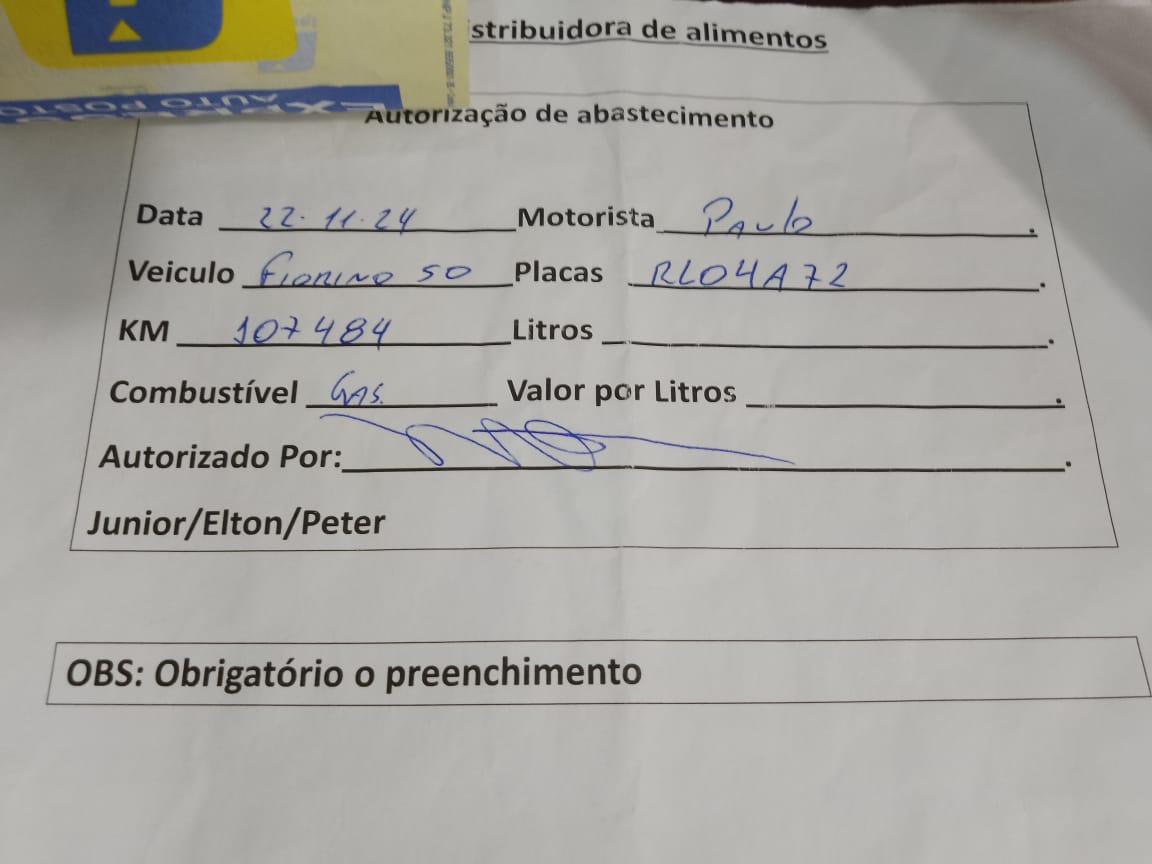 stribuidora de alimentos
EX
AUTO POSTO
Autorização de abastecimento
Data 22.11.24 Motorista Paulo.
Veiculo Fiorino 50 Placas RLO4A72.
KM 107484 Litros .
Combustível Gas. Valor por Litros .
Autorizado Por: .
Junior/Elton/Peter
OBS: Obrigatório o preenchimento